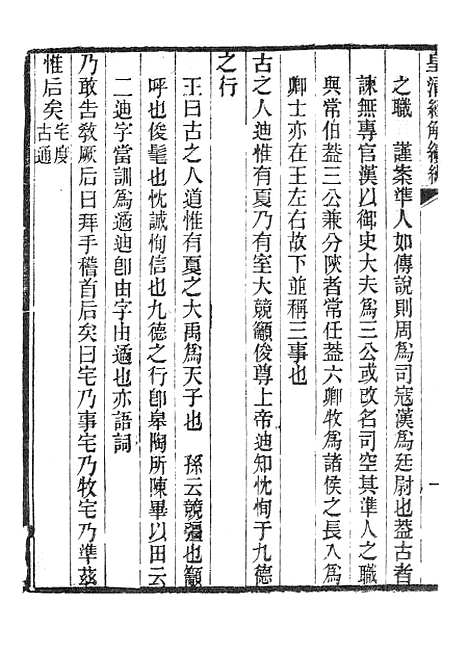 皇清經解續編
一
之職　謹案準人如傳說則周爲司寇漢爲廷尉也葢古者
諫無專官漢以御史大夫爲三公或改名司空其準人之職
與常伯葢三公兼分陝者常任葢六卿牧爲諸侯之長入爲
卿士亦在王左右故下並稱三事也
古之人迪惟有夏乃有室大競籲俊尊上帝迪知忱恂于九德
之行
王曰古之人道惟有夏之大禹爲天子也　孫云競彊也籲
呼也俊髦也忱誠恂信也九德之行卽皋陶所陳畢以田云
二迪字當訓爲遹迪卽由字由遹也亦語詞
乃敢吿敎厥后曰拜手稽首后矣曰宅乃事宅乃牧宅乃準茲
惟后矣宅度
古通